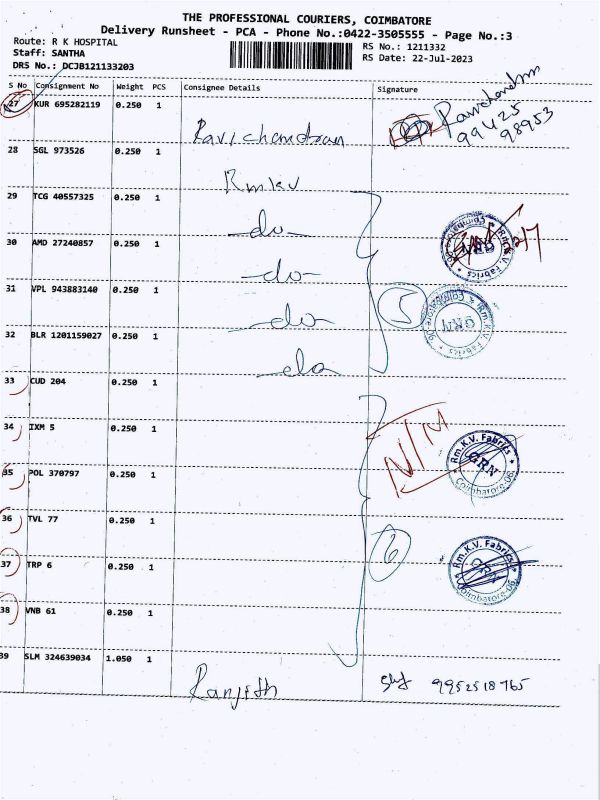 THE PROFESSIONAL COURIERS, COIMBATORE
Delivery Runsheet - PCA - Phone No.:0422-3505555 - Page No.:3
Route: R K HOSPITAL
Staff: SANTHA
DRS No.: DCJB121133203
RS No.: 1211332
RS Date: 22-Jul-2023
S No Consignment No Weight PCS Consignee Details Signature
27 KUR 695282119 0.250 1
Ravichandran Ravichandran
99425
98953
28 SGL 973526 0.250 1
Rmkv
29 TCG 40557325 0.250 1
-do-
30 AMD 27240857 0.250 1
-do-
31 VPL 943883140 0.250 1
-do-
32 BLR 1201159027 0.250 1
-do-
5
Rm.K.V. Fabrics
GRN
33 CUD 204 0.250 1
34 IXM 5 0.250 1
N/M
Rm.K.V. Fabrics
GRN
Coimbatore-06
35 POL 370797 0.250 1
36 TVL 77 0.250 1
6
Rm.K.V. Fabrics
Coimbatore-06
37 TRP 6 0.250 1
38 VNB 61 0.250 1
39 SLM 324639034 1.050 1
Ranjith 9952518765